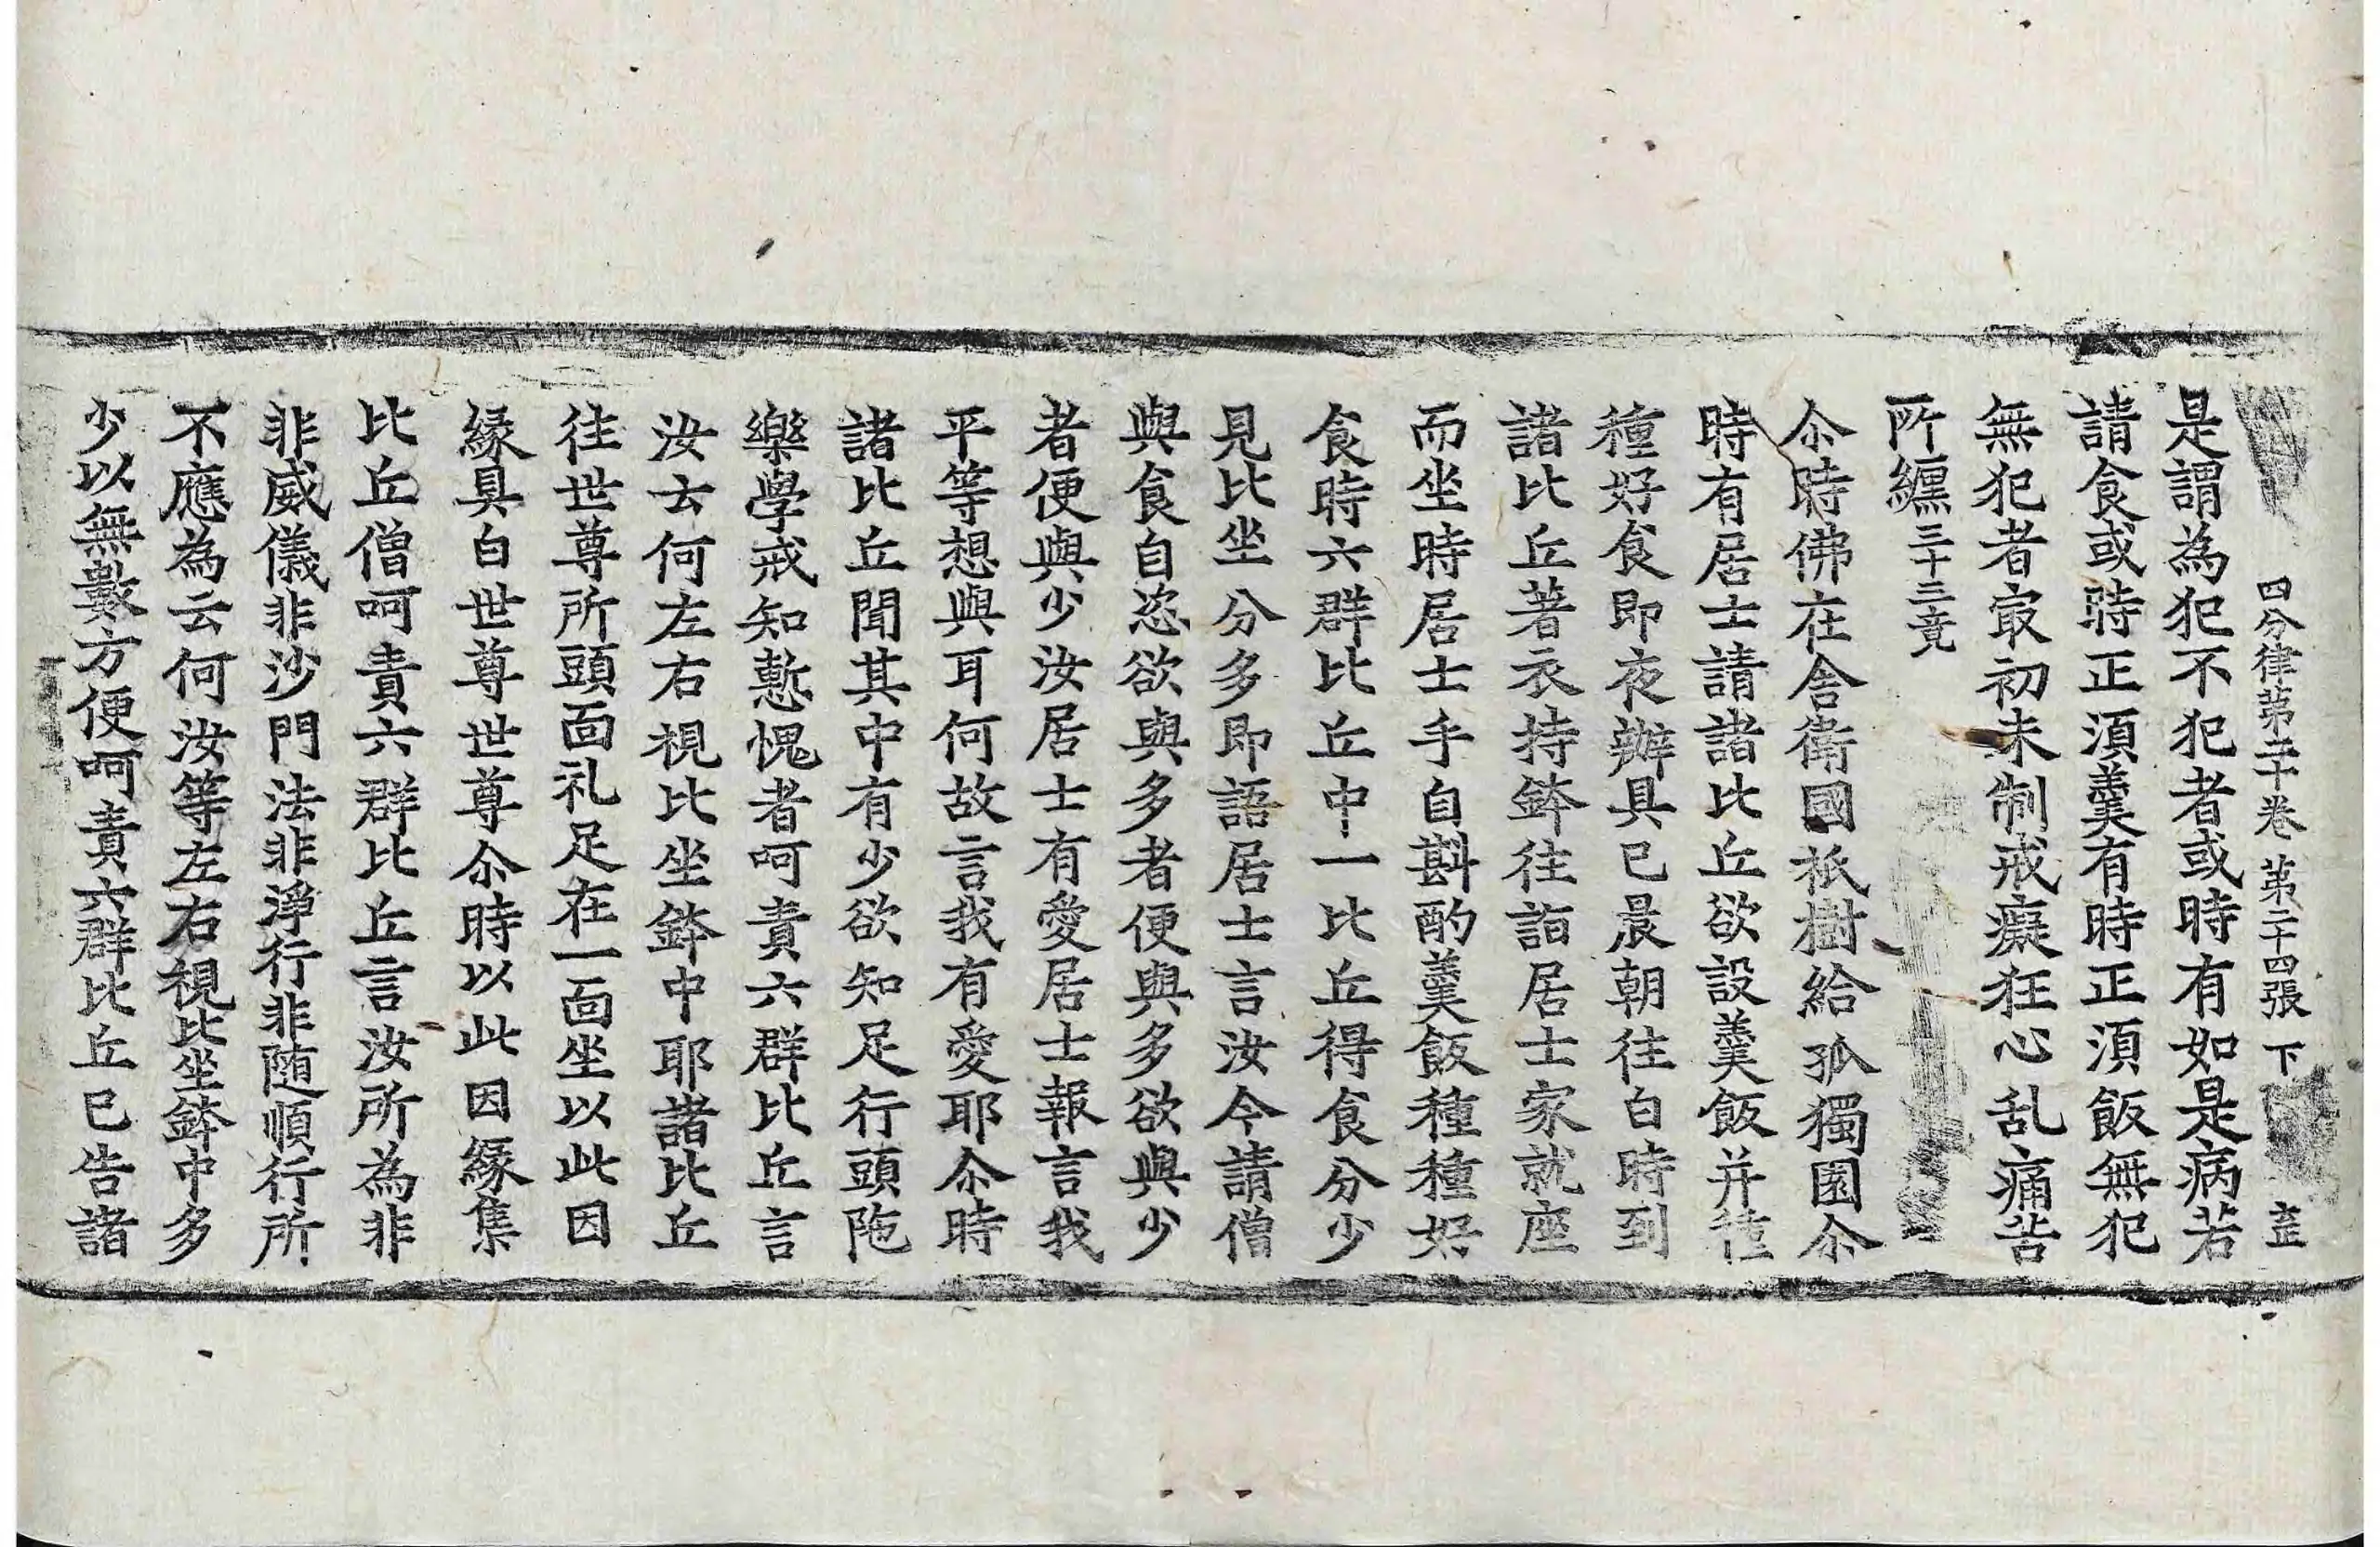 四分律第二十卷 第二十四張 下
是謂為犯不犯者或時有如是病若
請食或時正湏羹有時正湏飯無犯
無犯者㝡初未制戒癡狂心乱痛苦
所纏三十三竟
尒時佛在舍衛國祇樹給孤獨園尒
時有居士請諸比丘欲設羹飯并種
種好食即夜辦具已晨朝往白時到
諸比丘著衣持鉢往詣居士家就座
而坐時居士手自斟酌羹飯種種好
食時六群比丘中一比丘得食分少
見比坐分多即語居士言汝今請僧
與食自恣欲與多者便與多欲與少
者便與少汝居士有愛居士報言我
平等想與耳何故言我有愛耶尒時
諸比丘聞其中有少欲知足行頭陁
樂學戒知慙愧者呵責六群比丘言
汝云何左右視比坐鉢中耶諸比丘
往世尊所頭面礼足在一面坐以此因
緣具白世尊世尊尒時以此因緣集
比丘僧呵責六群比丘言汝所為非
非威儀非沙門法非淨行非随順行所
不應為云何汝等左右視比坐鉢中多
少以無數方便呵責六群比丘已告諸